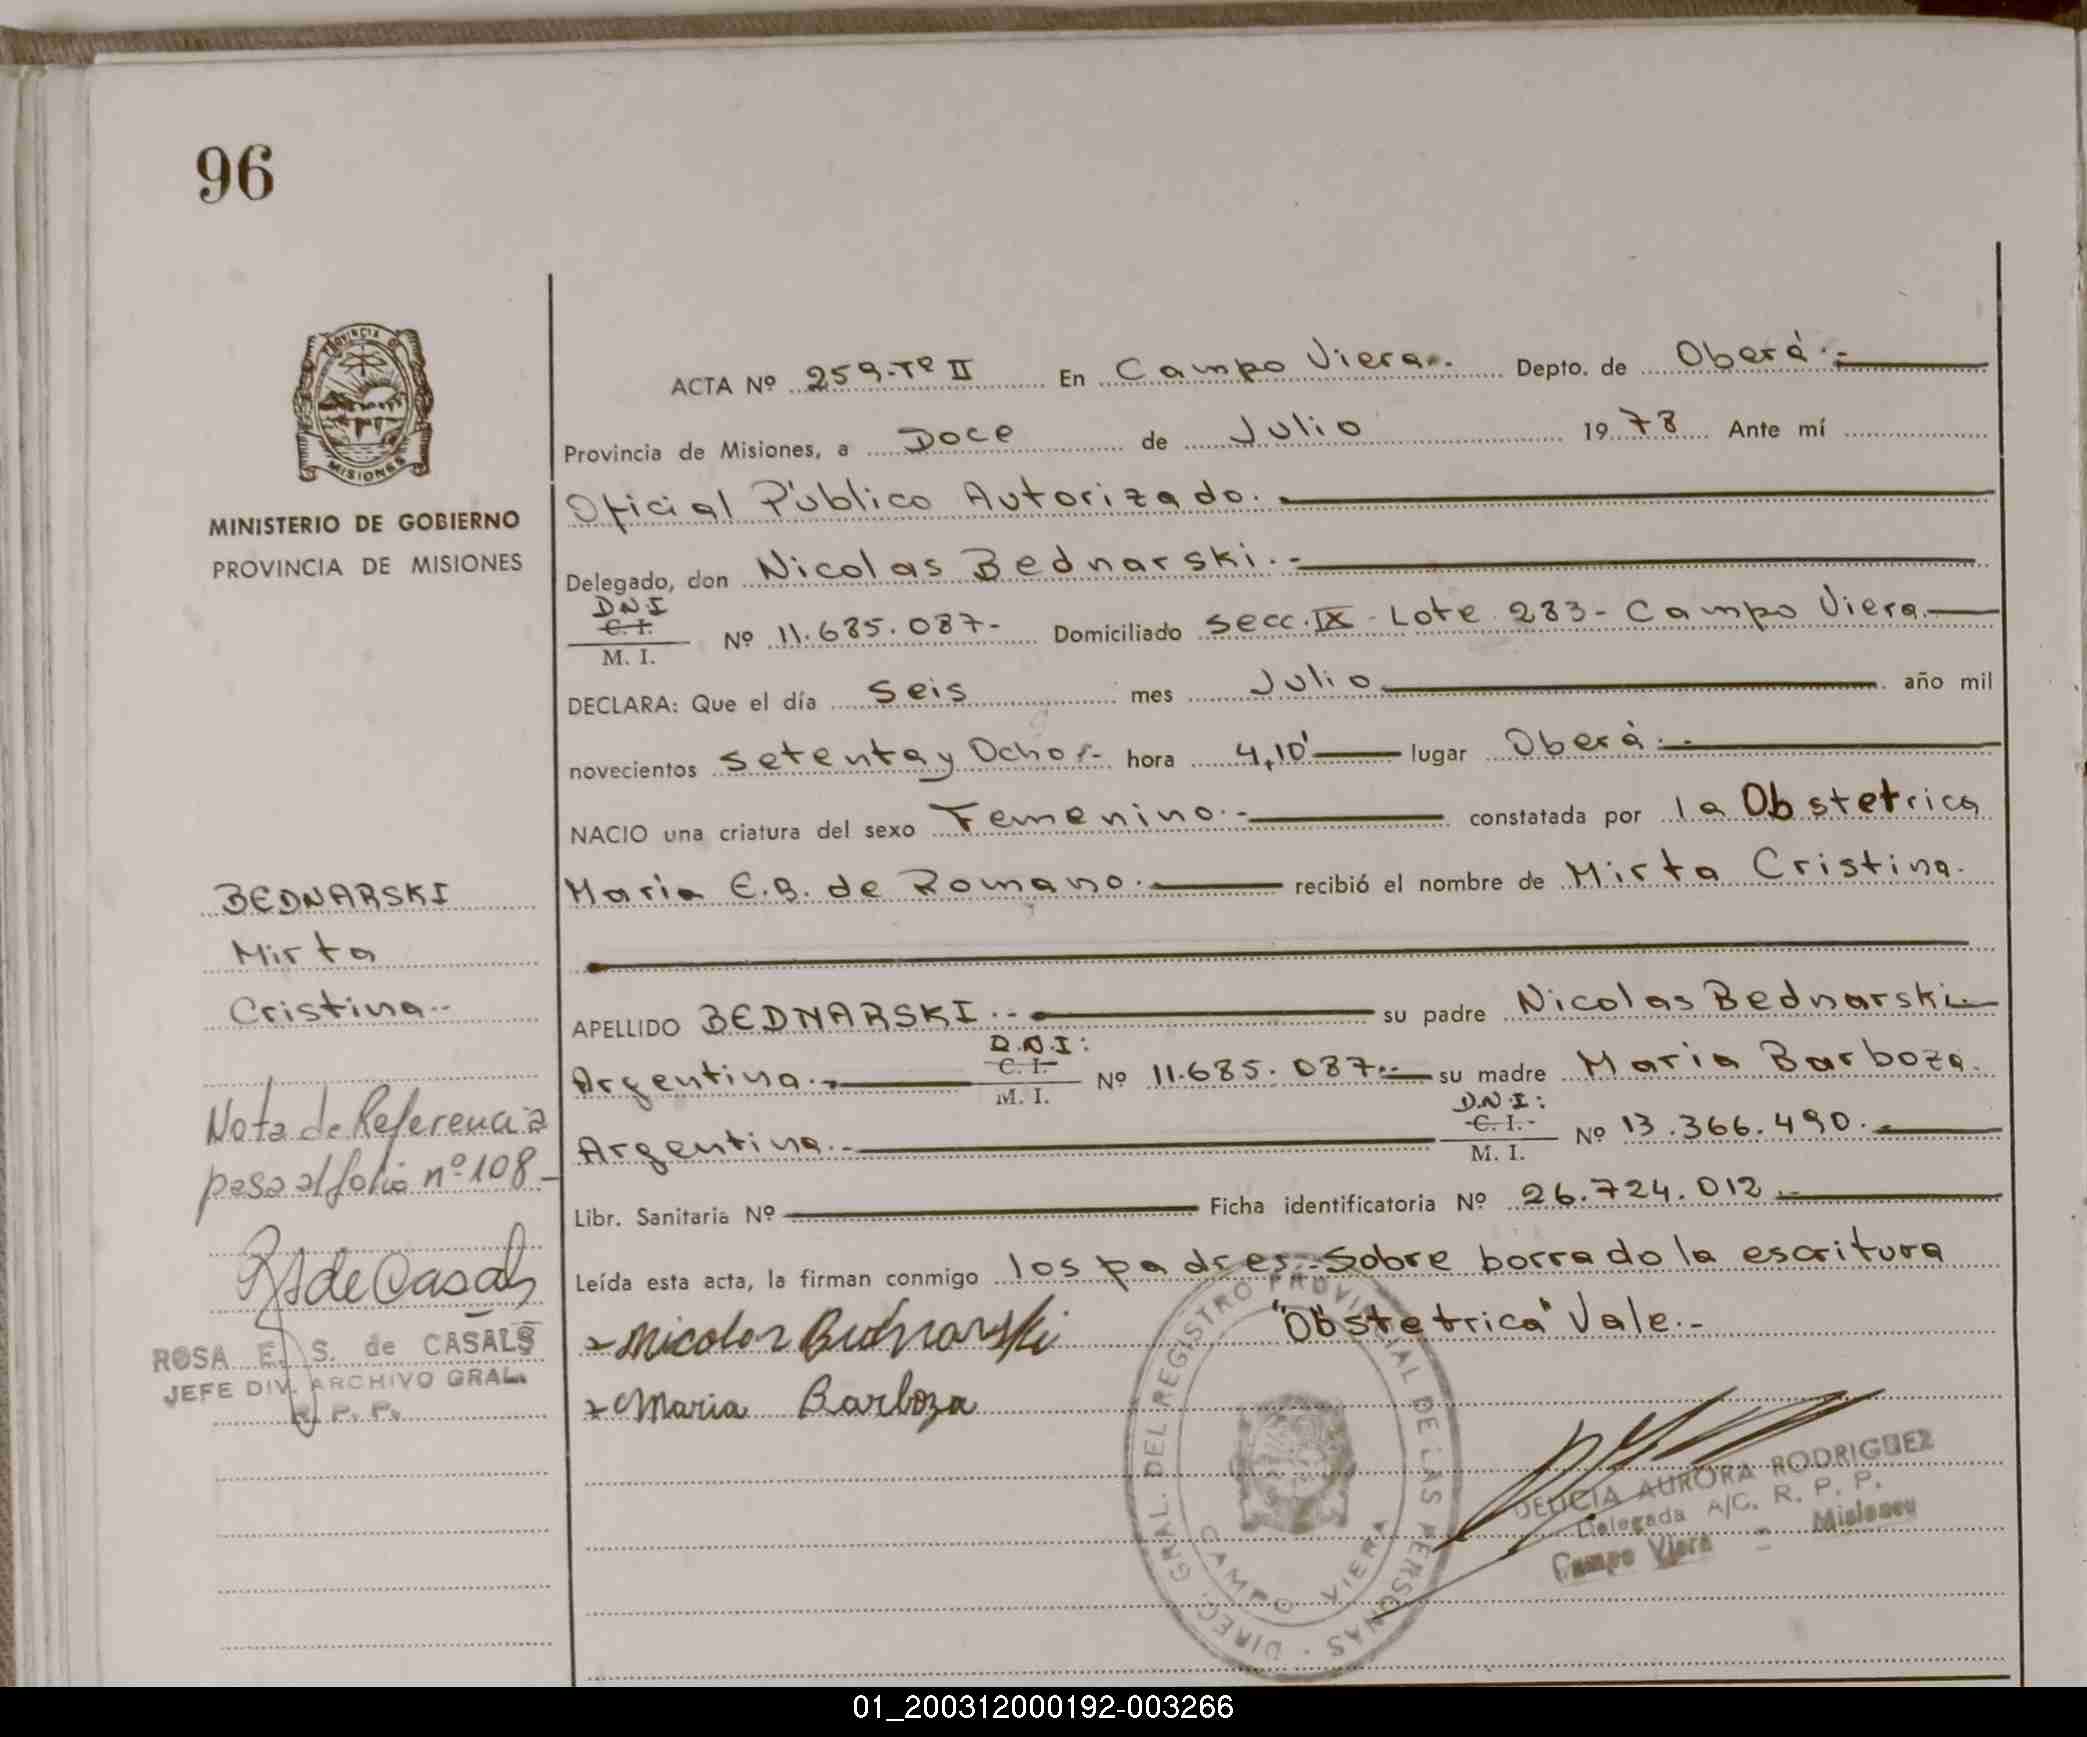 96
PROVINCIA DE
MISIONES
MINISTERIO DE GOBIERNO
PROVINCIA DE MISIONES
ACTA Nº 259-Tº II En Campo Viera.- Depto. de Oberá.-
Provincia de Misiones, a Doce de Julio 1978 Ante mí
Oficial Público Autorizado.
Delegado, don Nicolas Bednarski.-
D.N.I
C. I.
M. I.
Nº 11.685.087- Domiciliado Secc. IX - Lote 283 - Campo Viera.
DECLARA: Que el día Seis mes Julio año mil
novecientos Setenta y Ocho.- hora 4,10' lugar Oberá.-
NACIO una criatura del sexo Femenino.- constatada por la Obstetrica
Maria E.B. de Romano. recibió el nombre de Mirta Cristina.
APELLIDO BEDNARSKI.- su padre Nicolas Bednarski.
Argentina.- D.N.I: C. I. M. I. Nº 11.685.087.- su madre Maria Barboza.
Argentina.- D.N.I: C. I. M. I. Nº 13.366.490.
Libr. Sanitaria Nº Ficha identificatoria Nº 26.724.012.-
Leída esta acta, la firman conmigo los padres.-Sobre borrado la escritura
"Obstetrica" Vale.-
Nicolas Bednarski
Maria Barboza
BEDNARSKI
Mirta
Cristina.-
Nota de Referencia
pasa al folio nº 108-
R S de Casals
ROSA E. S. de CASALS
JEFE DIV. ARCHIVO GRAL.
R. P. P.
DIREC. GRAL. DEL REGISTRO PROVINCIAL DE LAS PERSONAS
CAMPO VIERA
DELICIA AURORA RODRIGUEZ
Delegada A/C. R. P. P.
Campo Viera - Misiones
01_200312000192-003266